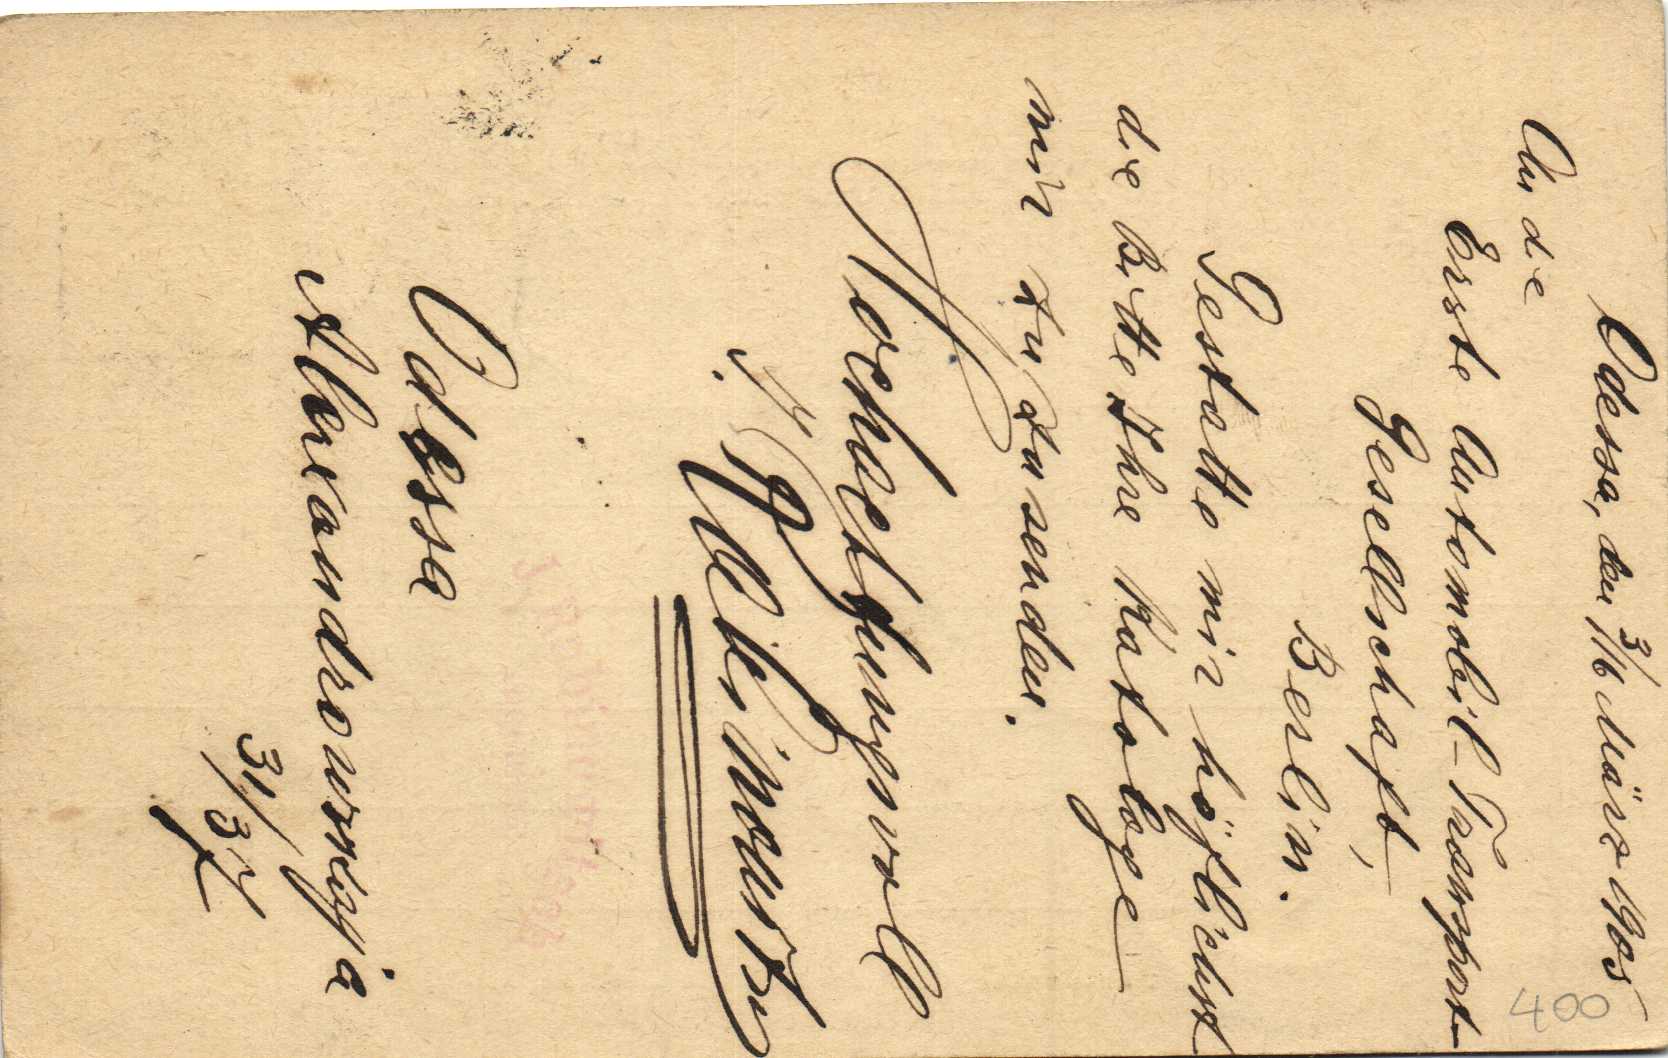 Odessa, den 3/16 März 1905
An die
Erste Automobil-Transport-
Gesellschaft,
Berlin.
Gestatte mir höflichst
die Bitte Ihre Kataloge
mir zu zusenden.
Hochachtungsvoll
Odessa
Alexandrowskija
31/37
400